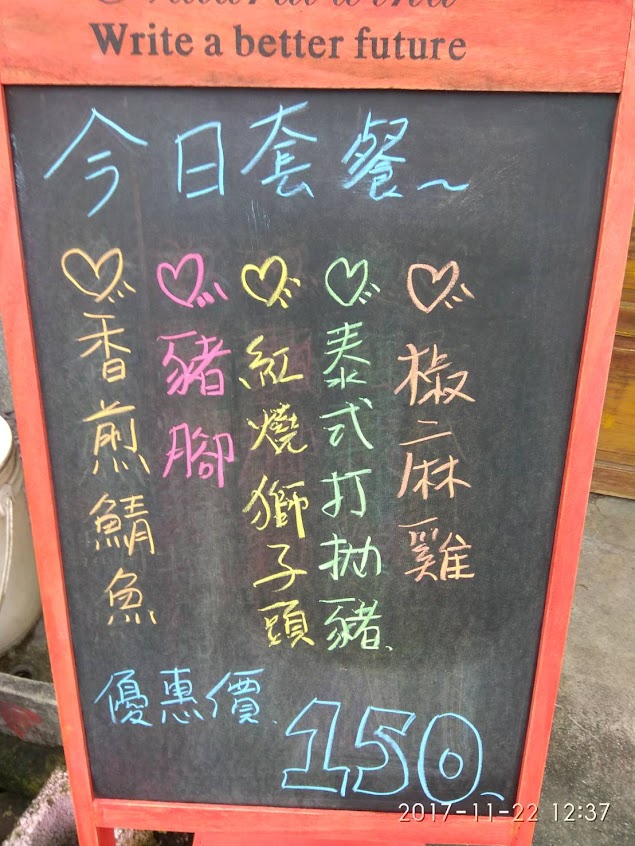 Write a better future
今日套餐~
椒麻雞
泰式打拋豬
紅燒獅子頭
豬腳
香煎鯖魚
優惠價
150
2017-11-22 12:37